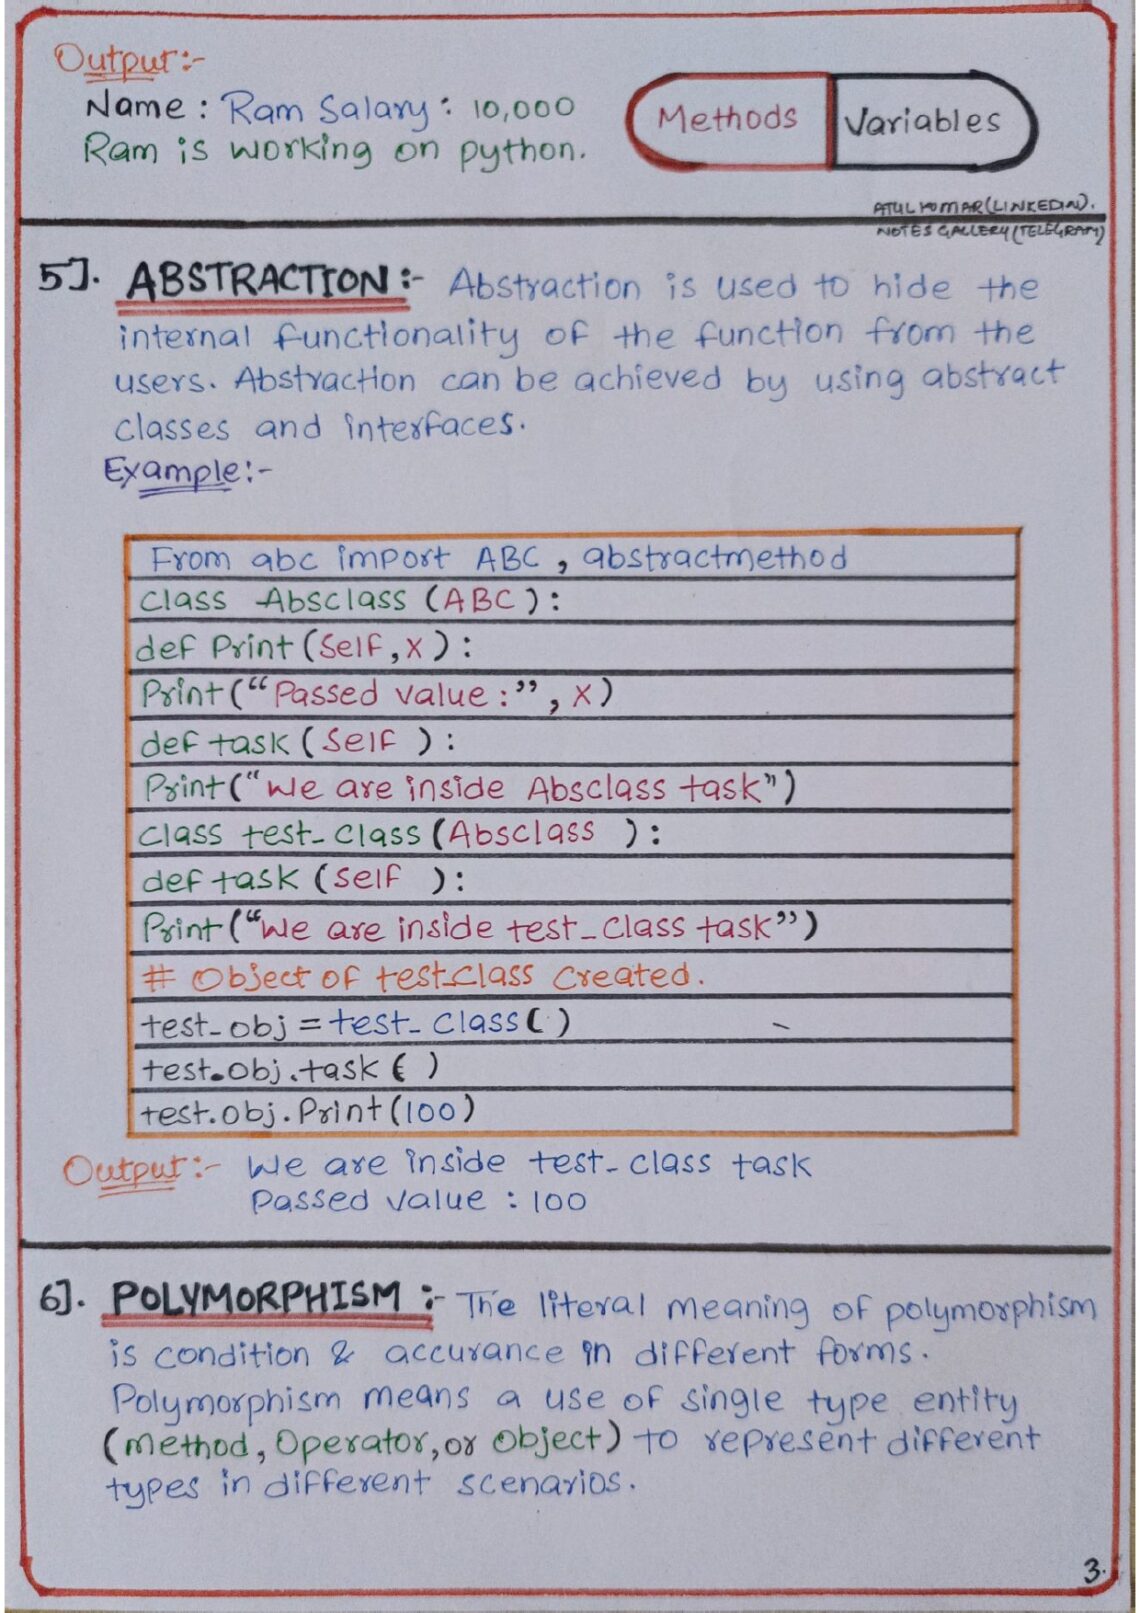 Output:-
Name : Ram Salary : 10,000
Ram is working on python.
Methods Variables
ATUL KUMAR(LINKEDIN).
NOTES GALLERY(TELEGRAM)
5]. ABSTRACTION :- Abstraction is used to hide the
internal functionality of the function from the
users. Abstraction can be achieved by using abstract
classes and interfaces.
Example:-
From abc import ABC , abstractmethod
class Absclass (ABC ):
def Print (Self,x ) :
Print (“Passed value :” , x)
def task ( Self ) :
Print (“We are inside Absclass task”)
class test_class (Absclass ) :
def task (self ) :
Print (“We are inside test_class task”)
# Object of test_class created.
test_obj = test_class ( )
test.obj.task ( )
test.obj.Print (100)
Output :- We are inside test_class task
Passed value : 100
6]. POLYMORPHISM :- The literal meaning of polymorphism
is condition & accurance in different forms.
Polymorphism means a use of single type entity
(method, Operator, or object) to represent different
types in different scenarios.
3.